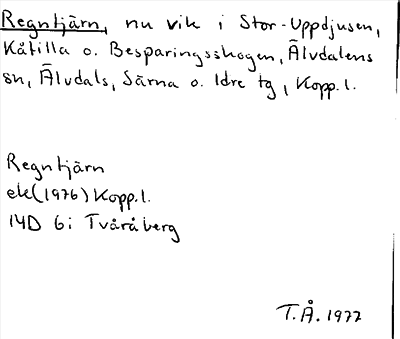 Regntjärn, nu vik i Stor-Uppdjusen,
Kåtilla o. Besparingsskogen, Älvdalens
sn, Älvdals, Särna o. Idre tg, Kopp.l.
Regntjärn
ek(1976) Kopp.l.
14D 6i Tvåråberg
T.Å. 1977